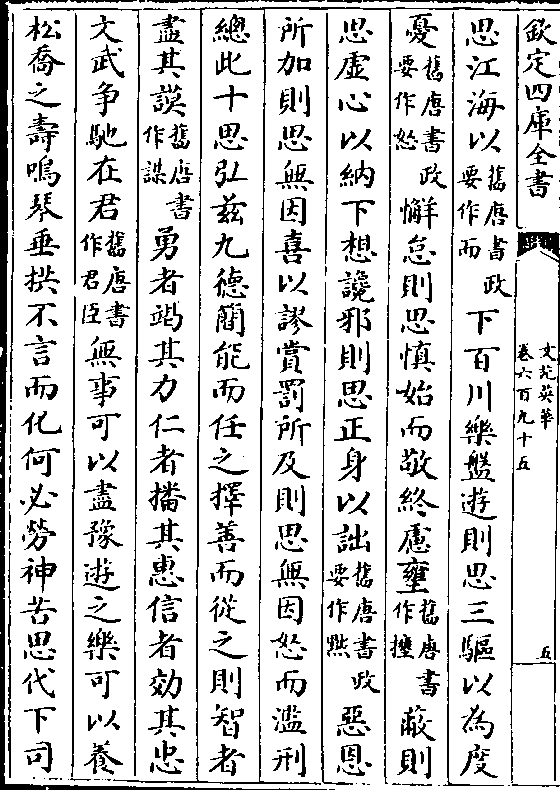 欽定四庫全書
文苑英華
卷六百九十五
五
思江海以舊唐書政要作而下百川樂盤遊則思三驅以為度
憂舊唐書政要作恐懈怠則思慎始而敬終慮壅舊唐書作擁蔽則
思虛心以納下想讒邪則思正身以詘舊唐書政要作黜惡恩
所加則思無因喜以謬賞罰所及則思無因怒而濫刑
總此十思弘兹九德簡能而任之擇善而從之則智者
盡其謨舊唐書作謀勇者竭其力仁者播其惠信者効其忠
文武争馳在君舊唐書作君臣無事可以盡豫遊之樂可以養
松喬之壽鳴琴垂拱不言而化何必勞神苦思代下司